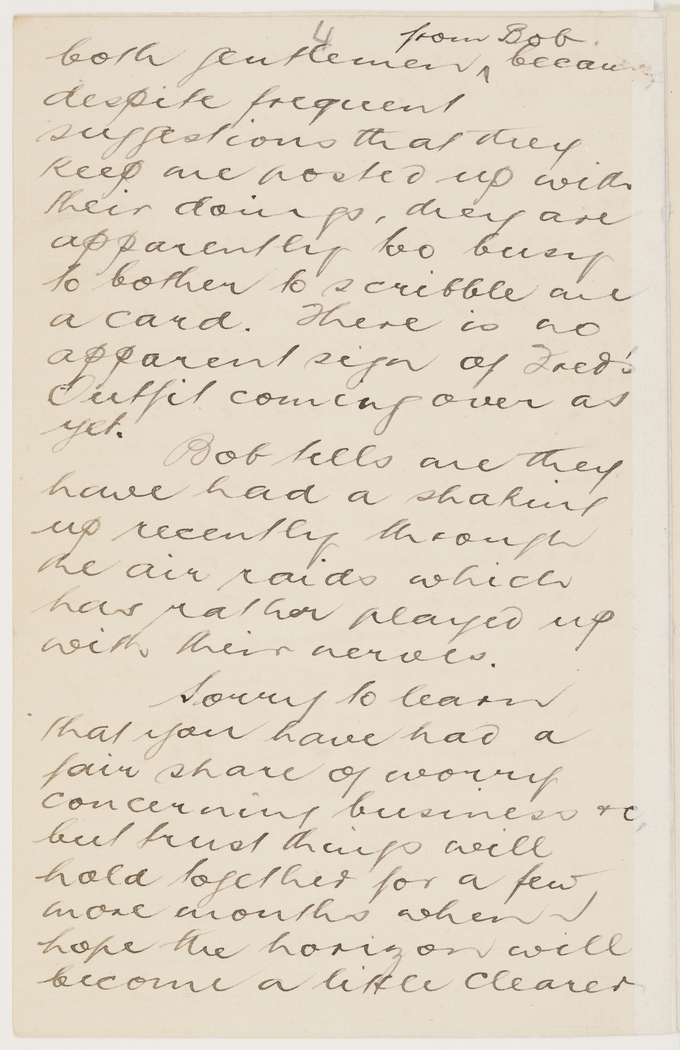 4
from Bob
both gentlemen, ^ becau
despite frequent
suggestions that they
keep me posted up with
their doings, they are
apparently too busy
to bother to scribble me
a card. There is no
apparent sign of Fred's
Outfit coming over as
yet.
Bob tells me they
have had a shaking
up recently through
the air raids which
has rather played up
with their nerves.
Sorry to learn
that you have had a
fair share of worry
concerning business + c,
but trust things will
hold together for a few
more months when I
hope the horizon will
become a little clearer